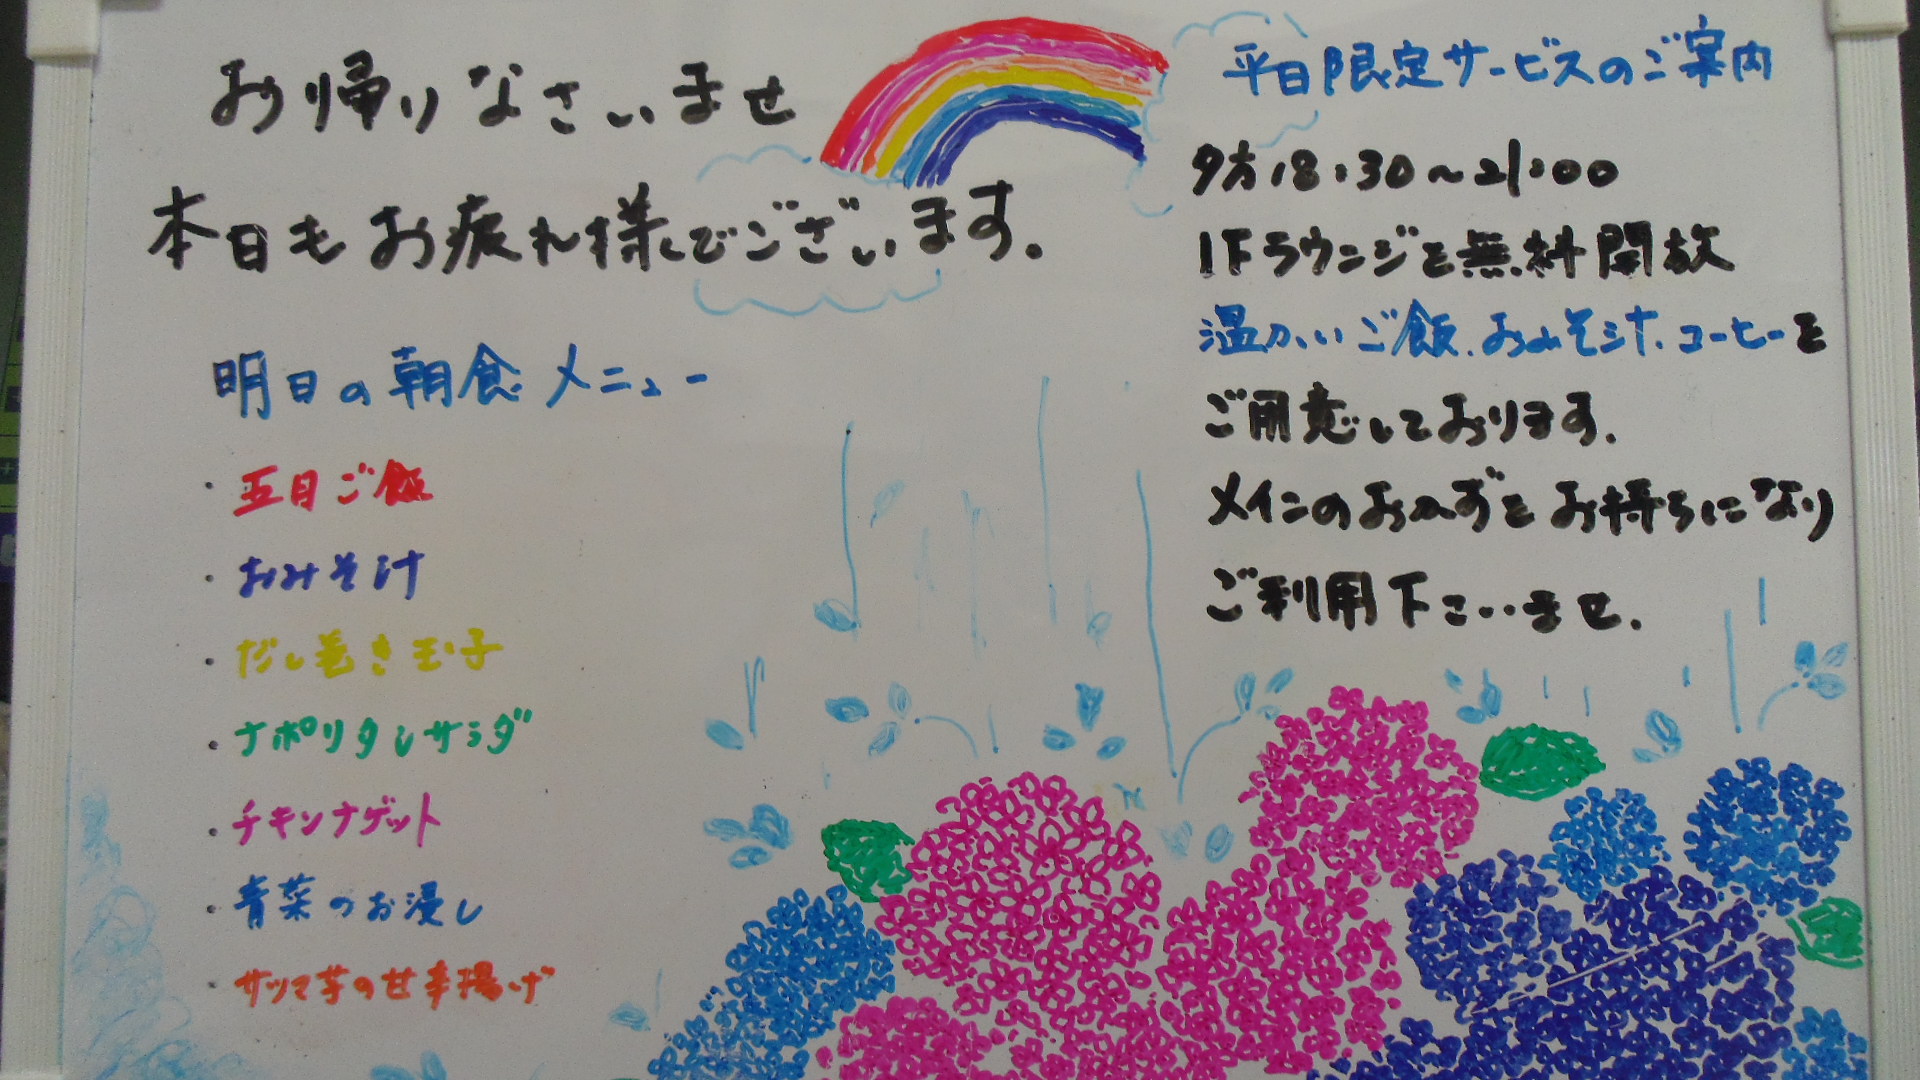 お帰りなさいませ
本日もお疲れ様でございます。
明日の朝食メニュー
・五目ご飯
・おみそ汁
・だし巻き玉子
・ナポリタンサラダ
・チキンナゲット
・青菜のお浸し
・サツマ芋の甘辛揚げ
平日限定サービスのご案内
夕方18:30~21:00
1Fラウンジを無料開放
温かいご飯、おみそ汁、コーヒーを
ご用意しております。
メインのおかずをお持ちになり
ご利用下さいませ。